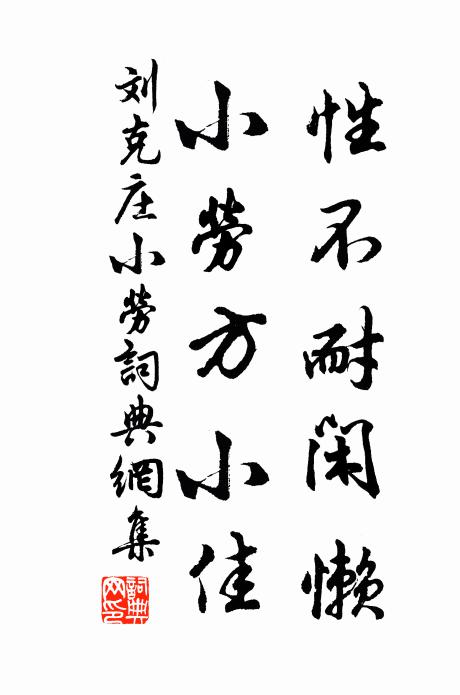 性不耐閑懒
小勞方小佳
刘克庄小勞詞典網集
詞典网印